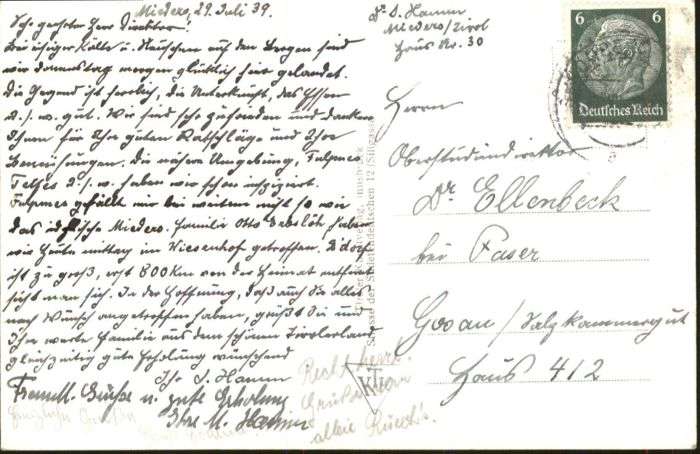 Mieders, 29. Juli 39.
Sehr geehrter Herr Direktor!
Bei eisiger Kälte u. Neuschnee auf den Bergen sind
wir Donnerstag morgen glücklich hier gelandet.
Die Gegend ist herrlich, die Unterkunft, das Essen
u.s.w. gut. Wir sind sehr zufrieden und danken
Ihnen für Ihre guten Ratschläge und Ihre
Bemühungen. Die nähere Umgebung, Fulpmes
Telfes u.s.w. haben wir schon inspiziert.
Fulpmes gefällt mir bei weitem nicht so wie
das idyllische Mieders. Familie Otto haben
wir heute mittag im Wiesenhof getroffen.
ist zu groß, erst 800 Km von der Heimat entfernt
sieht man sich. In der Hoffnung, daß auch Sie alles
nach Wunsch angetroffen haben, grüßt Sie und
Ihre werte Familie aus dem schönen Tirolerland
gleichzeitig gute Erholung wünschend
Ihr D. Hamm
Freundl. Grüße u. gute Erholung
Ihre M. Hamm
Recht herzl.
Grüße
Dr. D. Hamm
Mieders/Tirol
Haus Nr. 30
6 6
Deutsches Reich
Herrn
Oberstudiendirektor
Dr. Ellenbeck
bei Paser
Gosau/Salzkammergut
Haus 412